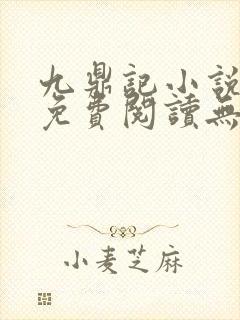 九鼎記小說
免費閱讀無
小麦芝麻